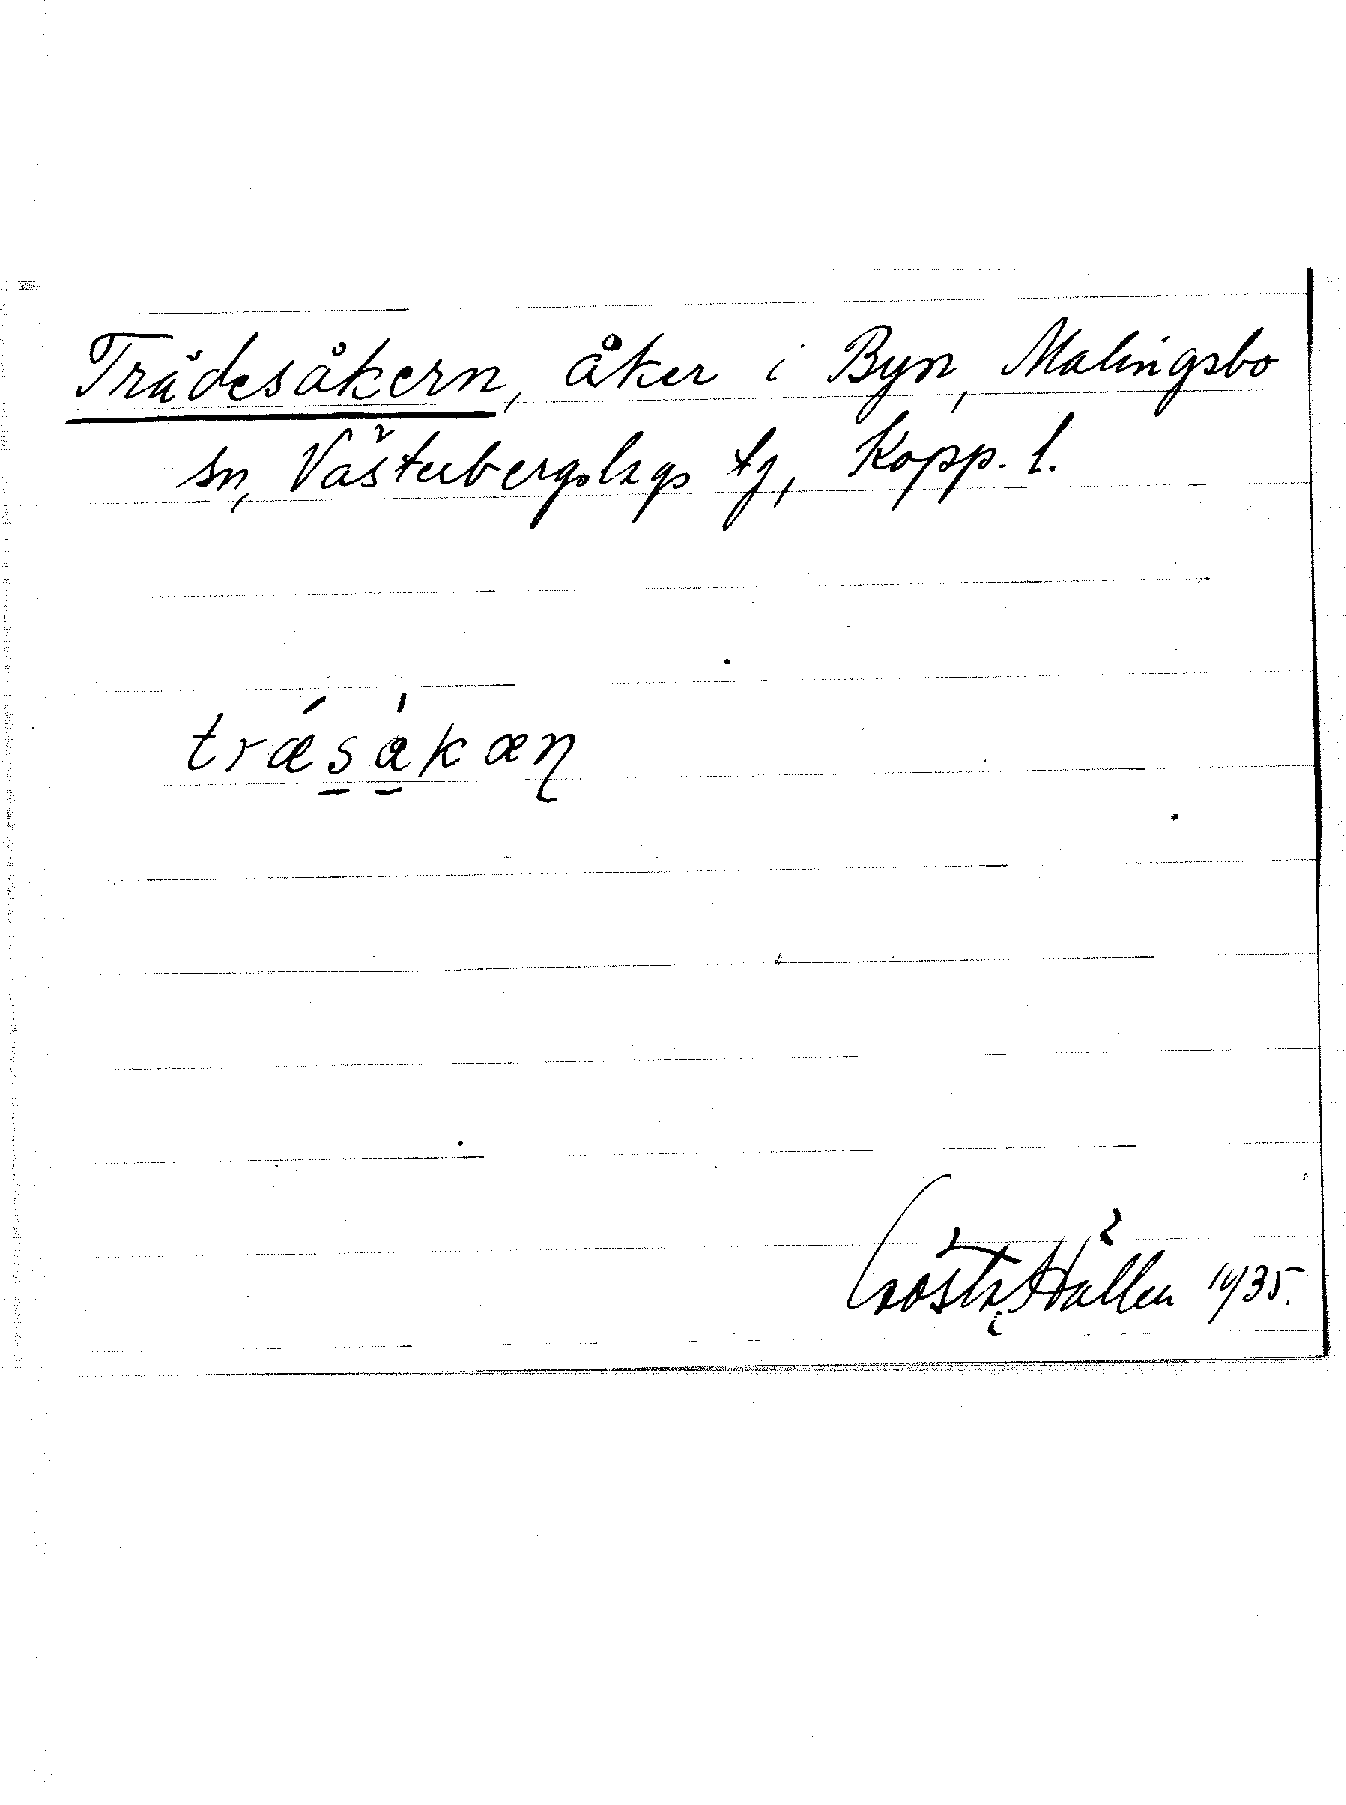 Trädesåkern, åker i Byn, Malingsbo
sn, Västerbergslags tg, Kopp. l.
træ´s̲å̲'kæn̢
Gösta Hällen 1935.